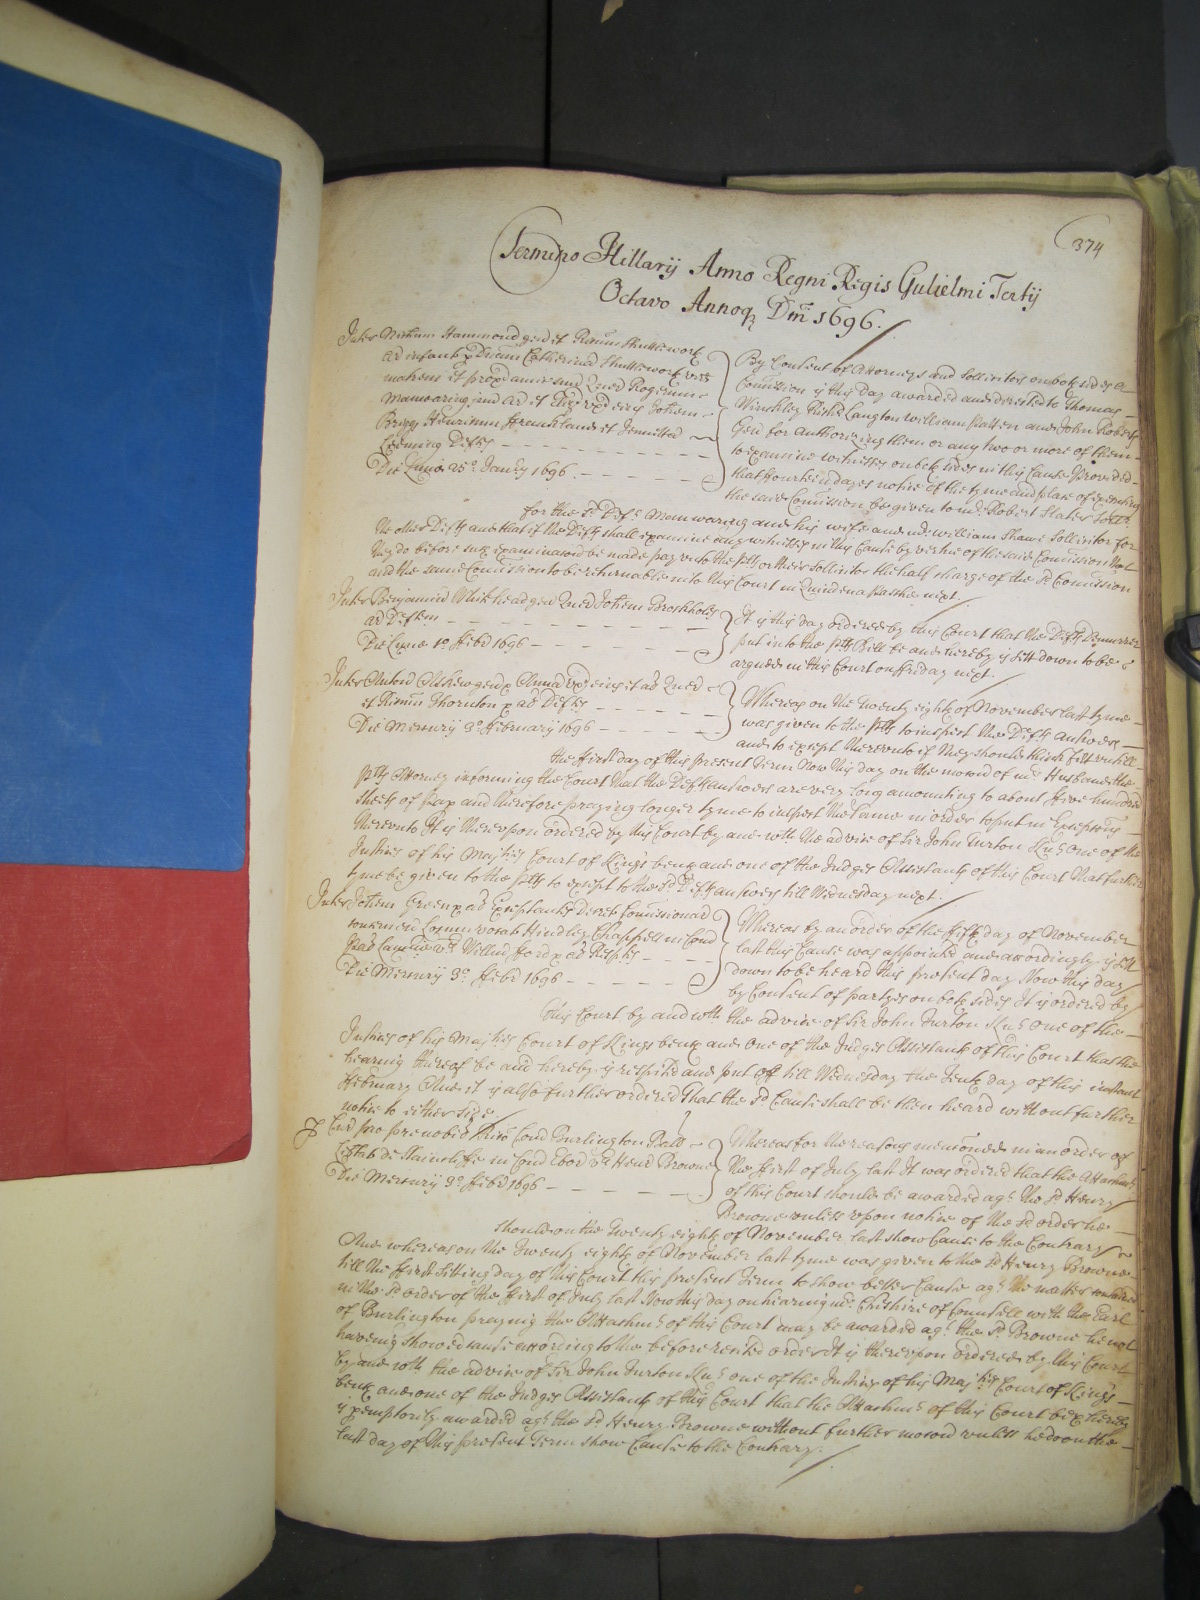 374
Termino Hillarij Anno Regni Regis Gulielmi Tertij
Octavo Annoq Dni 1696.
Inter Hammond gen et Shuttleworth
ad infant p Catherinam Shuttleworth
matrem et prox amic suu Quer Rogerum
Manwaring ad et eius Johem
Brigg Henricum et
Leeming Defts
Die Lunæ 25o Janry 1696
By Consent of Attorneys and Sollicitors on both sides a
Comission is this day awarded and directed to Thomas
Winckley Langton William Patten and John Roberts
Gen for Authorizing them or any two or more of them
to examine witnesses on both sides in this Cause Provided
that fourteen dayes notice of the tyme and place of executing
the same Comission be given to mr Robert Slater Sollr
for the sd Defts Manwaring and his wife and mr William Shawe Sollicitor for
the other Defts and that if the Defts shall examine any witnesses in this Cause by vertue of the said Comission that
they do before such examinacon be made pay unto the plts or their Sollicitor the half charge of the sd Comission
and the same Comission to be returnable into this Court in Quindena Pasche next.
Inter Benjamin Whithead gen Quer Johem Brockholes
ad Deftem
Die Lunæ 1o Feb 1696
It is this day ordered by this Court that the Defts Demurrer
put into the plts Bill be and hereby is sett down to be
argued in this Court on ffriday next.
Inter Askew gen Anna ux eius et al Quer
et Thornton al Defts
Die Mercurij 3o ffebruary 1696
Whereas on the Twenty eighth of November last tyme
was given to the plts to inspect the Defts answers
and to except thereunto if they should think fitt untill
the first day of this present Term Now this day on the mocon of mr Husband the
plts Attorney informing the Court that the Defts answers are very long amounting to about ffive hundred
sheets of pap and therefore praying longer tyme to inspect the same in order to put in Exceptions
thereunto It is thereupon ordered by this Court by and wth the advice of Sir John Turton Knt One of the
Justices of his Majties Court of Kings bench and one of the Judges Assistants of this Court that further
tyme be given to the plts to except to the sd Defts answers till Wednesday next.
Inter Johem Green al Exceptants Decret Comissionar
concernen Hindley Chappell in Com
Die Mercurij 3o ffeb 1696
Whereas by an order of the fifth day of November
last this Cause was appointed and accordingly is sett
down to be heard this present day Now this day
by Consent of partyes on both sides It is ordered by
this Court by and wth the advice of Sir John Turton Knt One of the
Justices of his Majties Court of Kings bench and One of the Judges Assistants of this Court that the
hearing thereof be and hereby is respited and put off till Wednesday the Tenth day of this instant
ffebruary And it is also further ordered That the sd Cause shall be then heard without further
notice to either side
pro prenobil Burlington Ball
de Staincliffe in Com Ebor vs Henr Browne
Die Mercurij 3o ffeb 1696
Whereas for the reasons mentioned in an order of
the ffirst of July last It was ordered that the Attachmt
of this Court should be awarded agt the sd Henry
Browne unless upon notice of the sd order he
should on the Twenty eighth of November last show Cause to the Contrary
And whereas on the Twenty eighth of November last tyme was given to the sd Henry Browne
till the ffirst sitting day of this Court this present Term to show better Cause agt the matter
in the sd order of the ffirst of July last Now this day on hearing mr Cheshire of Councell with the Earl
of Burlington praying the Attachmt of this Court may be awarded agt the sd Browne he not
haveing showed cause according to the before recited order It is thereupon ordered by this Court
by and wth the advice of Sir John Turton Knt one of the Justices of his Majties Court of Kings
bench and one of the Judges Assistants of this Court that the Attachmt of this Court be & hereby
is pemptorily awarded agt the sd Henry Browne without further mocon unless he do on the
last day of this present Term show Cause to the Contrary.